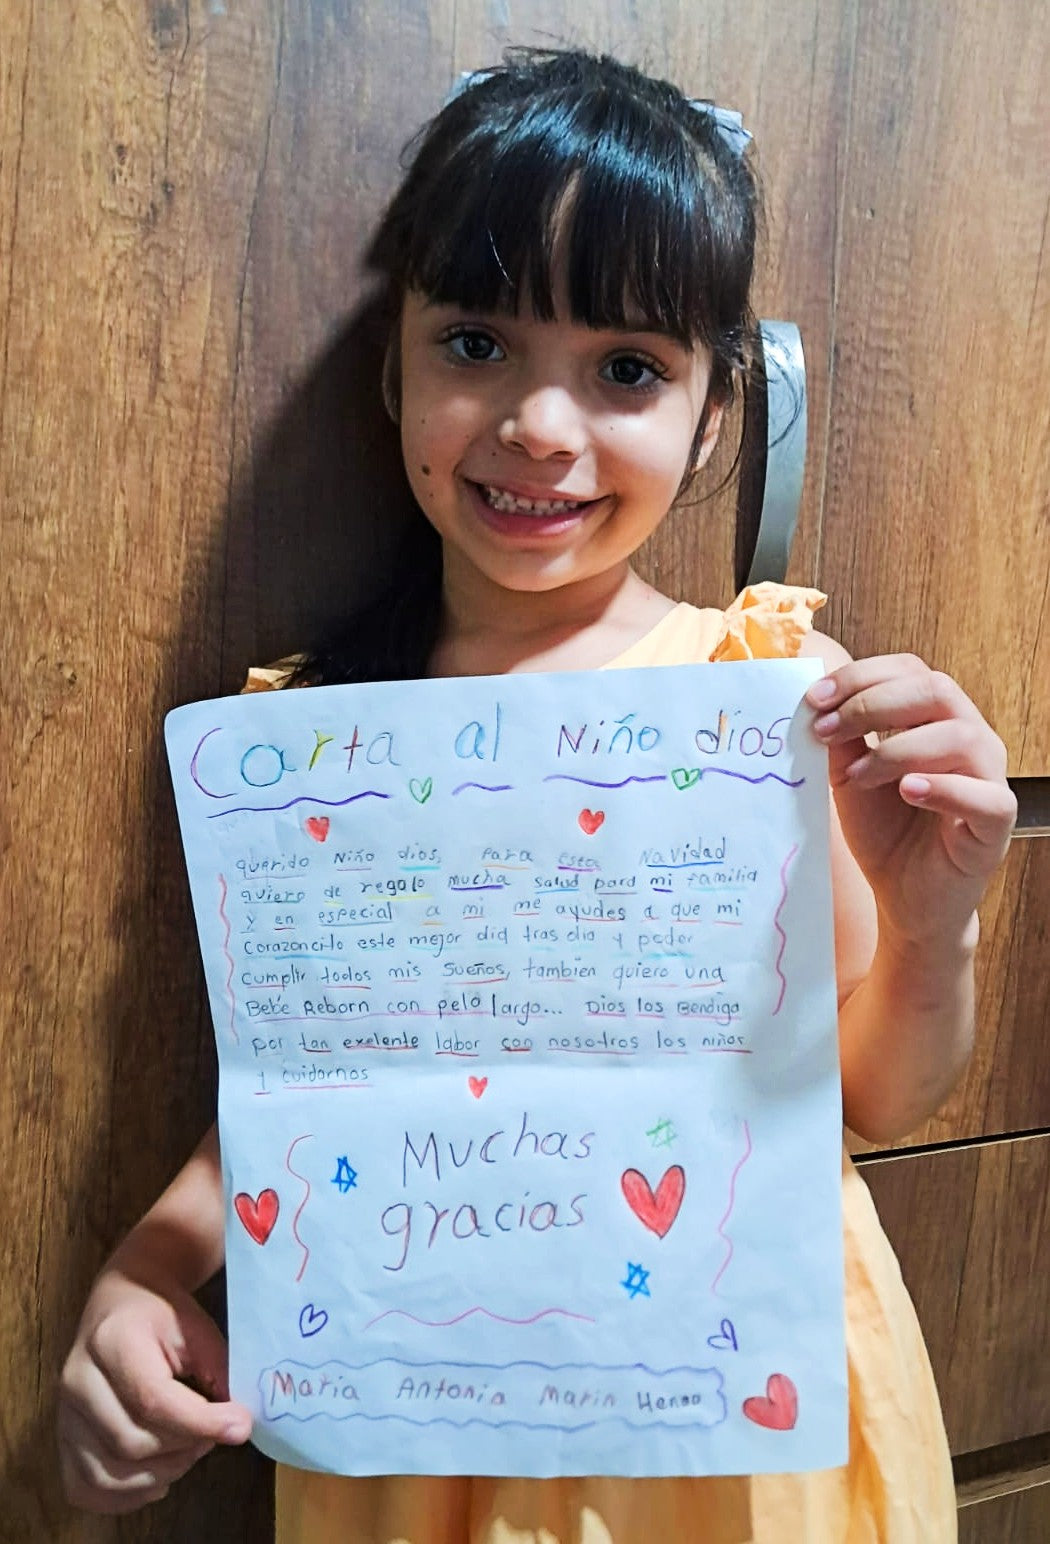 Carta al Niño dios
querido Niño dios, para esta Navidad
quiero de regalo mucha salud para mi familia
y en especial a mi me ayudes a que mi
Corazoncito este mejor dia tras dia y poder
cumplir todos mis sueños, tambien quiero una
Bebé Reborn con pelo largo... Dios los Bendiga
por tan exelente labor con nosotros los niños
y cuidarnos
Muchas
gracias
Maria Antonia Marin Henao